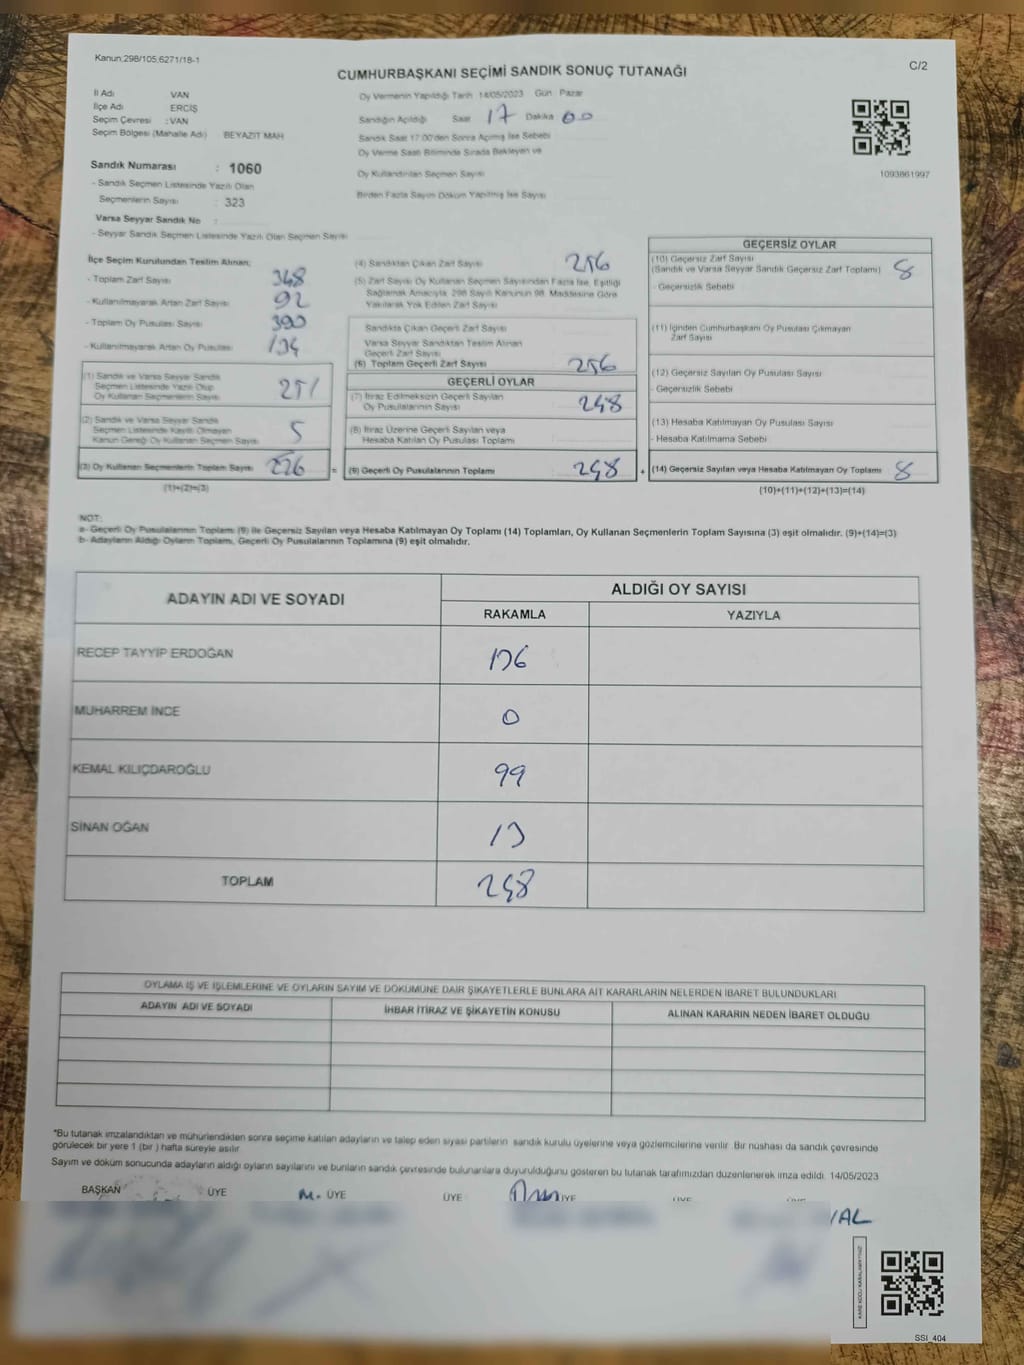 Kanun:298/105,6271/18-1
C/2
CUMHURBAŞKANI SEÇİMİ SANDIK SONUÇ TUTANAĞI
İl Adı VAN
İlçe Adı ERCİŞ
Seçim Çevresi : VAN
Seçim Bölgesi (Mahalle Adı) BEYAZIT MAH
Oy Vermenin Yapıldığı Tarih 14/05/2023 Gün Pazar
Sandığın Açıldığı Saat 17 Dakika 00
Sandık Saat 17:00'den Sonra Açılmış İse Sebebi
Oy Verme Saati Bitiminde Sırada Bekleyen ve
Oy Kullandırılan Seçmen Sayısı
Birden Fazla Sayım Döküm Yapılmış İse Sayısı
1093861997
Sandık Numarası : 1060
- Sandık Seçmen Listesinde Yazılı Olan
Seçmenlerin Sayısı : 323
Varsa Seyyar Sandık No :
- Seyyar Sandık Seçmen Listesinde Yazılı Olan Seçmen Sayısı
İlçe Seçim Kurulundan Teslim Alınan;
- Toplam Zarf Sayısı 348
- Kullanılmayarak Artan Zarf Sayısı 92
- Toplam Oy Pusulası Sayısı 390
- Kullanılmayarak Artan Oy Pusulası 134
(1) Sandık ve Varsa Seyyar Sandık
Seçmen Listesinde Yazılı Olup
Oy Kullanan Seçmenlerin Sayısı 251
(2) Sandık ve Varsa Seyyar Sandık
Seçmen Listesinde Kayıtlı Olmayan
Kanun Gereği Oy Kullanan Seçmen Sayısı 5
(3) Oy Kullanan Seçmenlerin Toplam Sayısı 256
(1)+(2)=(3)
(4) Sandıktan Çıkan Zarf Sayısı 256
(5) Zarf Sayısı Oy Kullanan Seçmen Sayısından Fazla İse, Eşitliği
Sağlamak Amacıyla 298 Sayılı Kanunun 98. Maddesine Göre
Yakılarak Yok Edilen Zarf Sayısı
Sandıkta Çıkan Geçerli Zarf Sayısı
Varsa Seyyar Sandıktan Teslim Alınan
Geçerli Zarf Sayısı
(6) Toplam Geçerli Zarf Sayısı 256
GEÇERLİ OYLAR
(7) İtiraz Edilmeksizin Geçerli Sayılan
Oy Pusulalarının Sayısı 248
(8) İtiraz Üzerine Geçerli Sayılan veya
Hesaba Katılan Oy Pusulası Toplamı
= (9) Geçerli Oy Pusulalarının Toplamı 248
GEÇERSİZ OYLAR
(10) Geçersiz Zarf Sayısı
(Sandık ve Varsa Seyyar Sandık Geçersiz Zarf Toplamı) 8
- Geçersizlik Sebebi
(11) İçinden Cumhurbaşkanı Oy Pusulası Çıkmayan
Zarf Sayısı
(12) Geçersiz Sayılan Oy Pusulası Sayısı
- Geçersizlik Sebebi
(13) Hesaba Katılmayan Oy Pusulası Sayısı
- Hesaba Katılmama Sebebi
+ (14) Geçersiz Sayılan veya Hesaba Katılmayan Oy Toplamı 8
(10)+(11)+(12)+(13)=(14)
NOT:
a- Geçerli Oy Pusulalarının Toplamı (9) ile Geçersiz Sayılan veya Hesaba Katılmayan Oy Toplamı (14) Toplamları, Oy Kullanan Seçmenlerin Toplam Sayısına (3) eşit olmalıdır. (9)+(14)=(3)
b- Adayların Aldığı Oyların Toplamı, Geçerli Oy Pusulalarının Toplamına (9) eşit olmalıdır.
ADAYIN ADI VE SOYADI
ALDIĞI OY SAYISI
RAKAMLA YAZIYLA
RECEP TAYYİP ERDOĞAN 136
MUHARREM İNCE 0
KEMAL KILIÇDAROĞLU 99
SİNAN OĞAN 13
TOPLAM 248
OYLAMA İŞ VE İŞLEMLERİNE VE OYLARIN SAYIM VE DÖKÜMÜNE DAİR ŞİKAYETLERLE BUNLARA AİT KARARLARIN NELERDEN İBARET BULUNDUKLARI
ADAYIN ADI VE SOYADI İHBAR İTİRAZ VE ŞİKAYETİN KONUSU ALINAN KARARIN NEDEN İBARET OLDUĞU
*Bu tutanak imzalandıktan ve mühürlendikten sonra seçime katılan adayların ve talep eden siyasi partilerin sandık kurulu üyelerine veya gözlemcilerine verilir. Bir nüshası da sandık çevresinde
görülecek bir yere 1 (bir ) hafta süreyle asılır.
Sayım ve döküm sonucunda adayların aldığı oyların sayılarını ve bunların sandık çevresinde bulunanlara duyurulduğunu gösteren bu tutanak tarafımızdan düzenlenerek imza edildi. 14/05/2023
BAŞKAN ÜYE M. ÜYE ÜYE ÜYE ÜYE
KARE KODU KARALAMAYINIZ
SSI_404